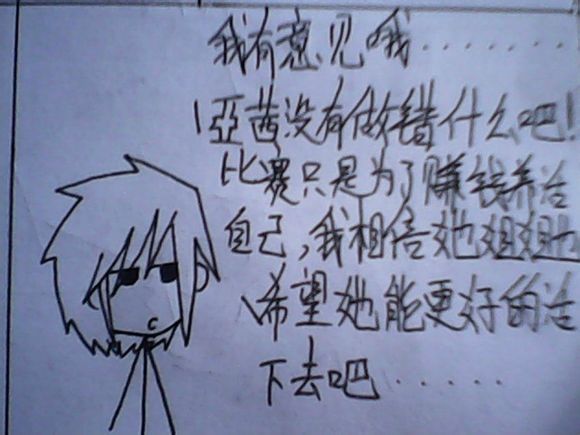 我有意见哦.......
亞茜没有做错什么吧!
比赛只是为了赚钱养活
自己,我相信她姐姐也
希望她能更好的活
下去吧.....